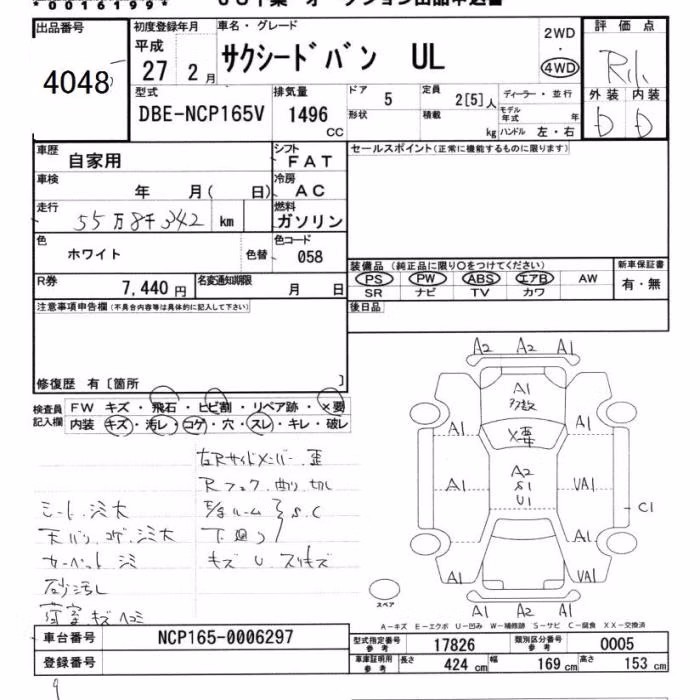 *0016199*
出品番号
4048
初度登録年月
平成
27 2月
車名・グレード
サクシードバン UL
2WD
・
4WD
評価点
R
外装 内装
D D
型式
DBE-NCP165V
排気量
1496
CC
ドア
5
形状
定員
2[5]人
積載
kg
ディーラー・並行
モデル年式 年
ハンドル 左・右
車歴
自家用
シフト
FAT
車検
年 月( 日)
冷房
AC
走行
55万8千342 km
燃料
ガソリン
色
ホワイト
色替
色コード
058
R券
7,440円
名変通知期限
月 日
セールスポイント(正常に機能するものに限ります)
装備品(純正品に限り○をつけてください)
PS PW ABS エアB AW
SR ナビ TV カワ
新車保証書
有・無
後日品
注意事項申告欄(不具合内容等は具体的に記入して下さい)
修復歴 有〔箇所 〕
検査員記入欄
FW キズ・飛石・ヒビ割・リペア跡・×要
内装 キズ・汚レ・コゲ・穴・スレ・キレ・破レ
左Rサイドメンバー 歪
Rフェンダ 曲り 切レ
S.C
下廻り
キズ U スリキズ
シート シミ大
天バリ コゲ シミ大
カーペット シミ
砂汚レ
荷室 キズ ヘコミ
A2 A2 A1
A1
多数
A1 A1
X要
A2
S1
U1
A1 UA1
C1
A1 A1
A1 UA1
A1 A2 A2
スペア
A-キズ E-エクボ U-凹み W-補修跡 S-サビ C-腐食 XX-交換済
車台番号
NCP165-0006297
登録番号
型式指定番号
参考
17826
類別区分番号
参考
0005
車庫証明用
参考
長さ 424 cm
幅 169 cm
高さ 153 cm